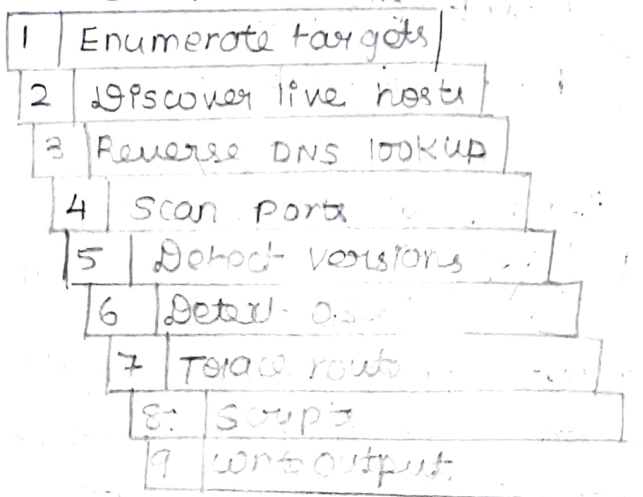 1 Enumerate targets
2 Discover live hosts
3 Reverse DNS lookup
4 Scan ports
5 Detect versions
6 Detect O.S
7 Trace route
8. Scripts
9 Write output.